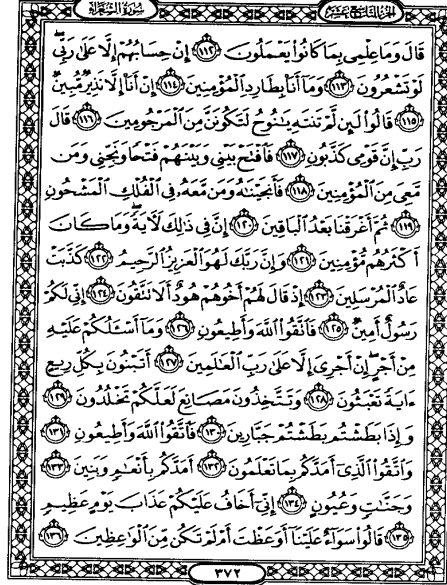 الجزء التاسع عشر
سورة الشعراء
قَالَ وَمَا عِلْمِى بِمَا كَانُوا۟ يَعْمَلُونَ ﴿١١٢﴾ إِنْ حِسَابُهُمْ إِلَّا عَلَىٰ رَبِّى ۖ
لَوْ تَشْعُرُونَ ﴿١١٣﴾ وَمَآ أَنَا۠ بِطَارِدِ ٱلْمُؤْمِنِينَ ﴿١١٤﴾ إِنْ أَنَا۠ إِلَّا نَذِيرٌ مُّبِينٌ
﴿١١٥﴾ قَالُوا۟ لَئِن لَّمْ تَنتَهِ يَـٰنُوحُ لَتَكُونَنَّ مِنَ ٱلْمَرْجُومِينَ ﴿١١٦﴾ قَالَ
رَبِّ إِنَّ قَوْمِى كَذَّبُونِ ﴿١١٧﴾ فَٱفْتَحْ بَيْنِى وَبَيْنَهُمْ فَتْحًا وَنَجِّنِى وَمَن
مَّعِىَ مِنَ ٱلْمُؤْمِنِينَ ﴿١١٨﴾ فَأَنجَيْنَـٰهُ وَمَن مَّعَهُۥ فِى ٱلْفُلْكِ ٱلْمَشْحُونِ
﴿١١٩﴾ ثُمَّ أَغْرَقْنَا بَعْدُ ٱلْبَاقِينَ ﴿١٢٠﴾ إِنَّ فِى ذَٰلِكَ لَـَٔايَةً ۖ وَمَا كَانَ
أَكْثَرُهُم مُّؤْمِنِينَ ﴿١٢١﴾ وَإِنَّ رَبَّكَ لَهُوَ ٱلْعَزِيزُ ٱلرَّحِيمُ ﴿١٢٢﴾ كَذَّبَتْ
عَادٌ ٱلْمُرْسَلِينَ ﴿١٢٣﴾ إِذْ قَالَ لَهُمْ أَخُوهُمْ هُودٌ أَلَا تَتَّقُونَ ﴿١٢٤﴾ إِنِّى لَكُمْ
رَسُولٌ أَمِينٌ ﴿١٢٥﴾ فَٱتَّقُوا۟ ٱللَّهَ وَأَطِيعُونِ ﴿١٢٦﴾ وَمَآ أَسْـَٔلُكُمْ عَلَيْهِ
مِنْ أَجْرٍ ۖ إِنْ أَجْرِىَ إِلَّا عَلَىٰ رَبِّ ٱلْعَـٰلَمِينَ ﴿١٢٧﴾ أَتَبْنُونَ بِكُلِّ رِيعٍ
ءَايَةً تَعْبَثُونَ ﴿١٢٨﴾ وَتَتَّخِذُونَ مَصَانِعَ لَعَلَّكُمْ تَخْلُدُونَ ﴿١٢٩﴾
وَإِذَا بَطَشْتُم بَطَشْتُمْ جَبَّارِينَ ﴿١٣٠﴾ فَٱتَّقُوا۟ ٱللَّهَ وَأَطِيعُونِ ﴿١٣١﴾
وَٱتَّقُوا۟ ٱلَّذِىٓ أَمَدَّكُم بِمَا تَعْلَمُونَ ﴿١٣٢﴾ أَمَدَّكُم بِأَنْعَـٰمٍ وَبَنِينَ ﴿١٣٣﴾
وَجَنَّـٰتٍ وَعُيُونٍ ﴿١٣٤﴾ إِنِّىٓ أَخَافُ عَلَيْكُمْ عَذَابَ يَوْمٍ عَظِيمٍ
﴿١٣٥﴾ قَالُوا۟ سَوَآءٌ عَلَيْنَآ أَوَعَظْتَ أَمْ لَمْ تَكُن مِّنَ ٱلْوَٰعِظِينَ ﴿١٣٦﴾
٣٧٢